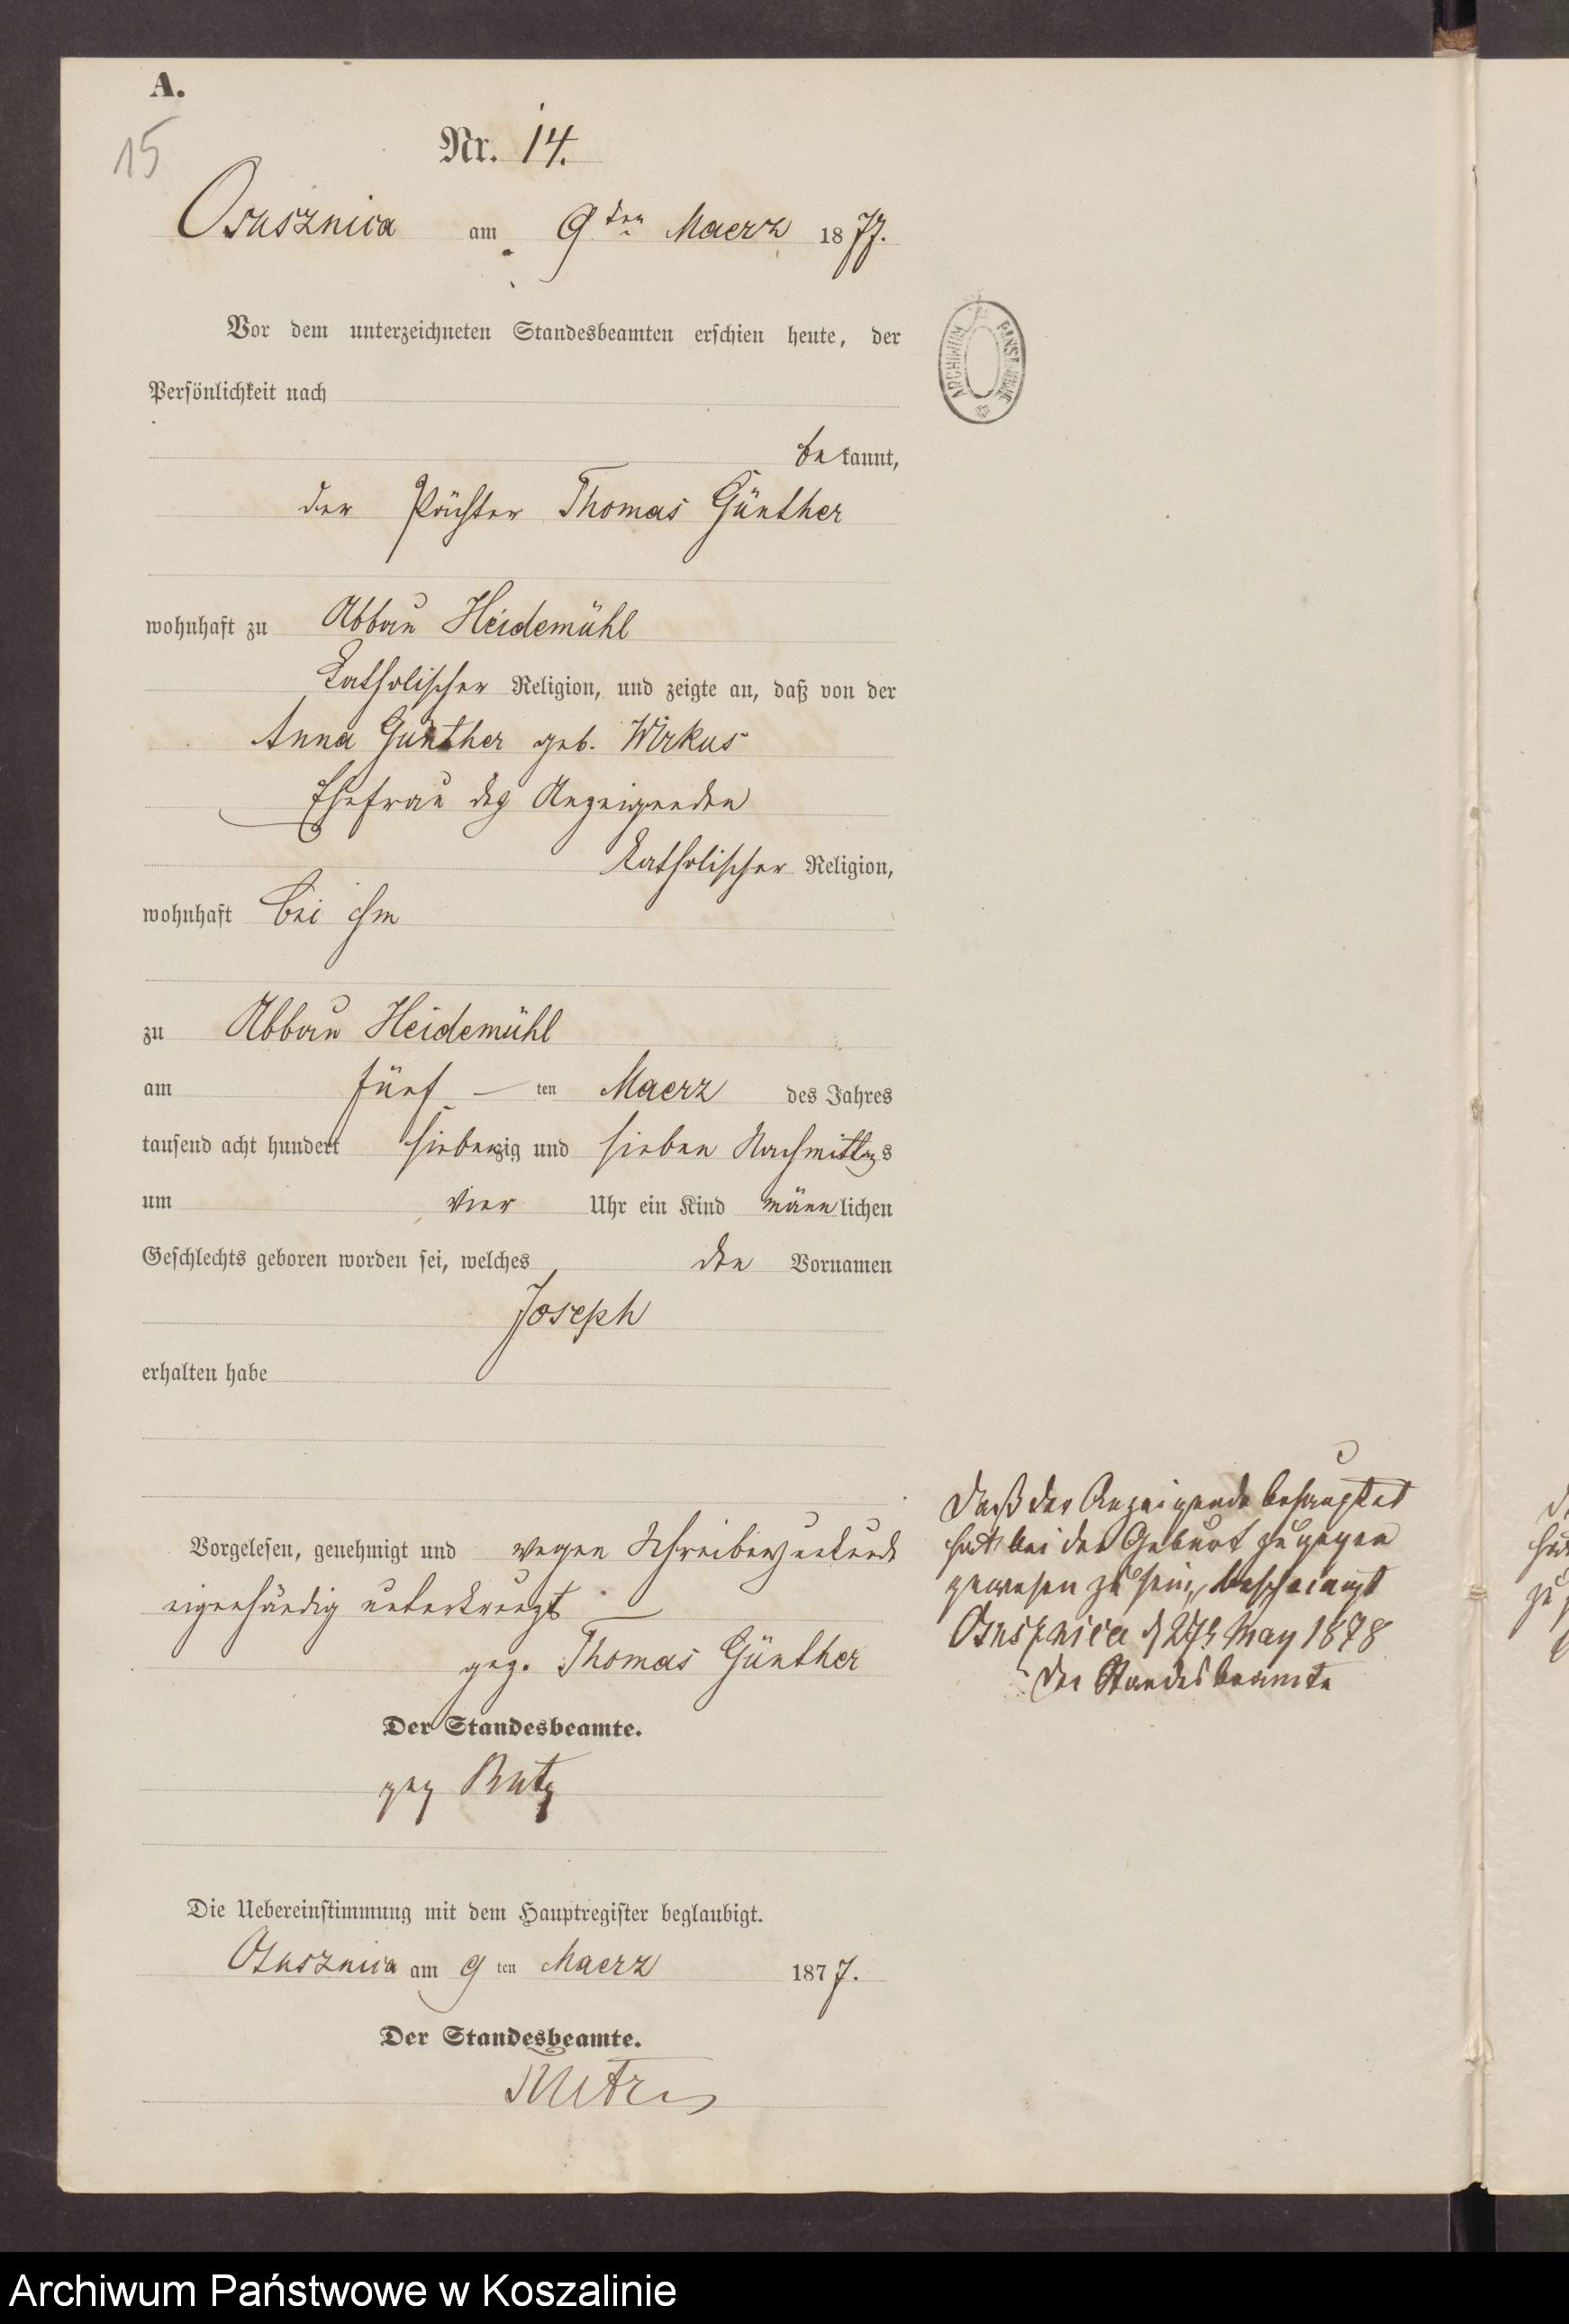 A.
15
Nr. 14.
Osusznica am 9ten Maerz 1877.
Vor dem unterzeichneten Standesbeamten erschien heute, der
Persönlichkeit nach
bekannt,
der Pächter Thomas Günther
wohnhaft zu Abbau Heidemühl
katholischer Religion, und zeigte an, daß von der
Anna Günther geb. Wirkus
Ehefrau des Anzeigenden
katholischer Religion,
wohnhaft bei ihm
zu Abbau Heidemühl
am fünf ten Maerz des Jahres
tausend acht hundert siebenzig und sieben Nachmittags
um vier Uhr ein Kind männlichen
Geschlechts geboren worden sei, welches den Vornamen
Joseph
erhalten habe
Vorgelesen, genehmigt und wegen Schreibensunkunde
eigenhändig unterkreuzt
gez. Thomas Günther
Der Standesbeamte.
gez
Die Uebereinstimmung mit dem Hauptregister beglaubigt.
Osusznica am 9 ten Maerz 1877.
Der Standesbeamte.
ARCHIWUM PAŃSTWOWE
Daß der Anzeigende behauptet
hat bei der Geburt zugegen
gewesen zu sein, bescheinigt
Osusznica d 27t May 1878
Der Standesbeamte
Archiwum Państwowe w Koszalinie